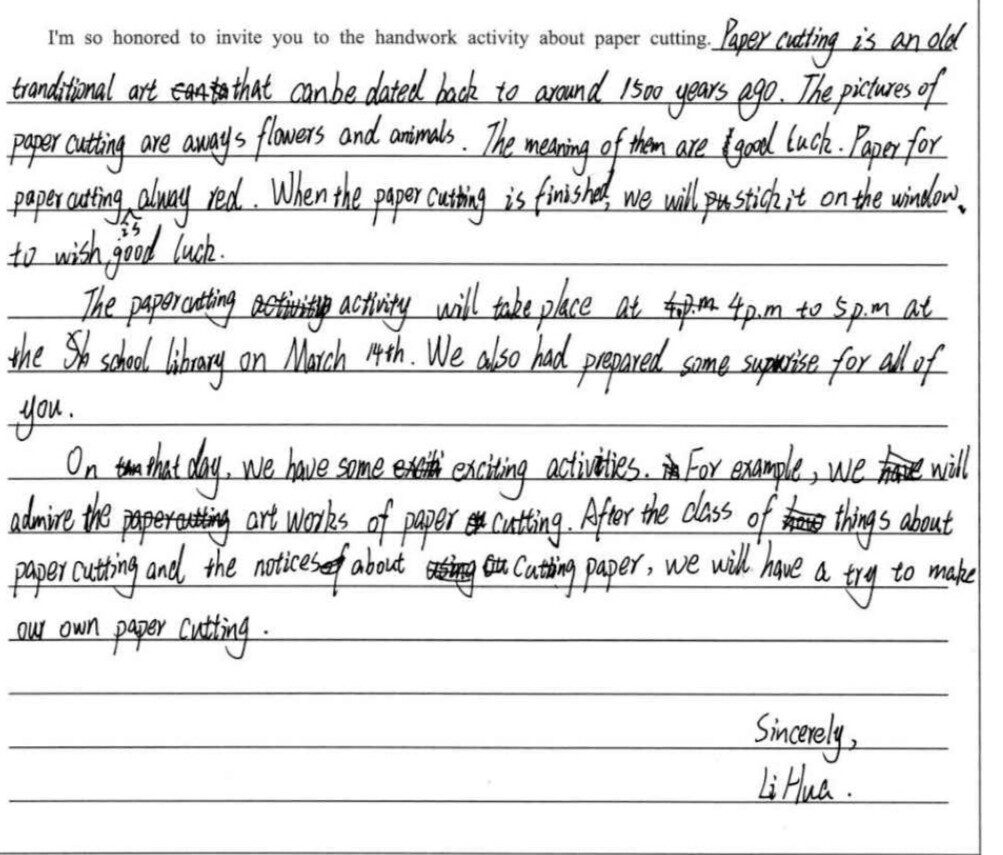 I'm so honored to invite you to the handwork activity about paper cutting. Paper cutting is an old
tranditional art that canbe dated back to around 1500 years ago. The pictures of
paper cutting are aways flowers and animals. The meaning of them are good luck. Paper for
paper cutting is alway red. When the paper cutting is finished, we will stick it on the window,
to wish good luck.
The paper cutting activity will take place at 4p.m to 5p.m at
the school library on March 14th. We also had prepared some suprise for all of
you.
On that day, we have some exciting activities. For example, we will
admire the art works of paper cutting. After the class of things about
paper cutting and the notices about cutting paper, we will have a try to make
our own paper cutting.
Sincerely,
Li Hua.